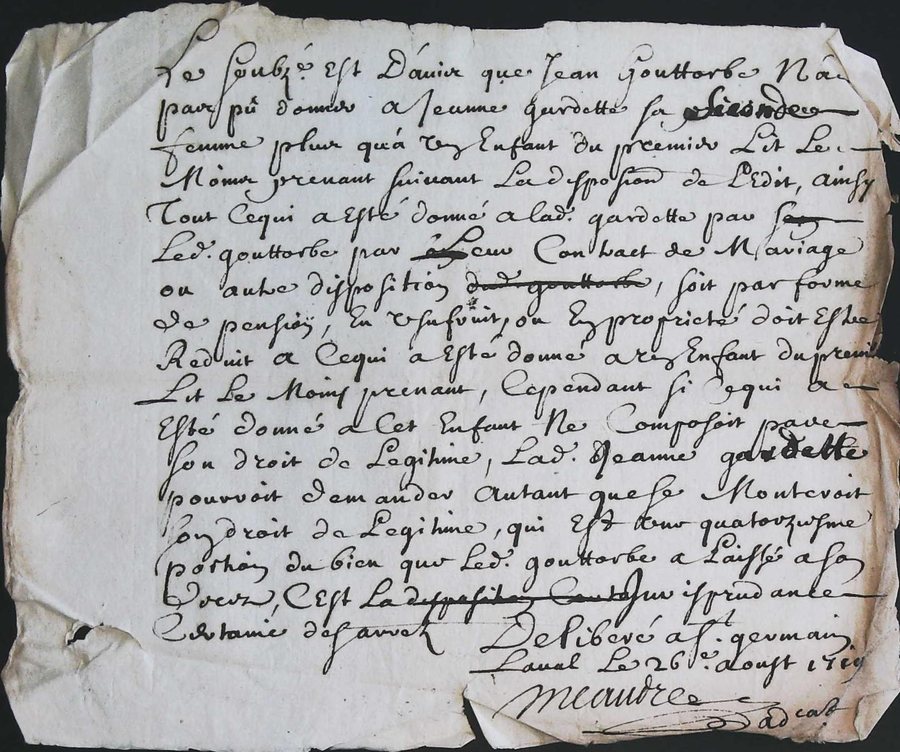 Le soubzé est Davir que Jean Gouttorbe Na
pas pû donner a Jeanne gardette sa seconde
femme plus qu'a un Enfant du premier Lit Le
Moins prenant suivant La disposion de L'Edit, ainsy
Tout Cequi a esté donné a lad. gardette par
Led. gouttorbe par Leur Contract de Mariage
ou autre disposition dud. gouttorbe, soit par forme
de pension, En usufruit, ou En proprieté doit Estre
Reduit a Cequi a Esté donné a un Enfant du premier
Lit Le Moins prenant, Cependant si Cequi a
Esté donné a Cet Enfant Ne Composoit pas
son droit de Legitime, Lad. Jeanne gardette
pourroit demander autant que se Monteroit
son droit de Legitime, qui Est une quatorziesme
portion du bien que Led. gouttorbe a Laissé a son
deces, C'est La disposition Jurisprudance
Certaine des arrets
Deliberé a St. germain
Laval Le 26e. aoust 1719
Meaudre
advcat